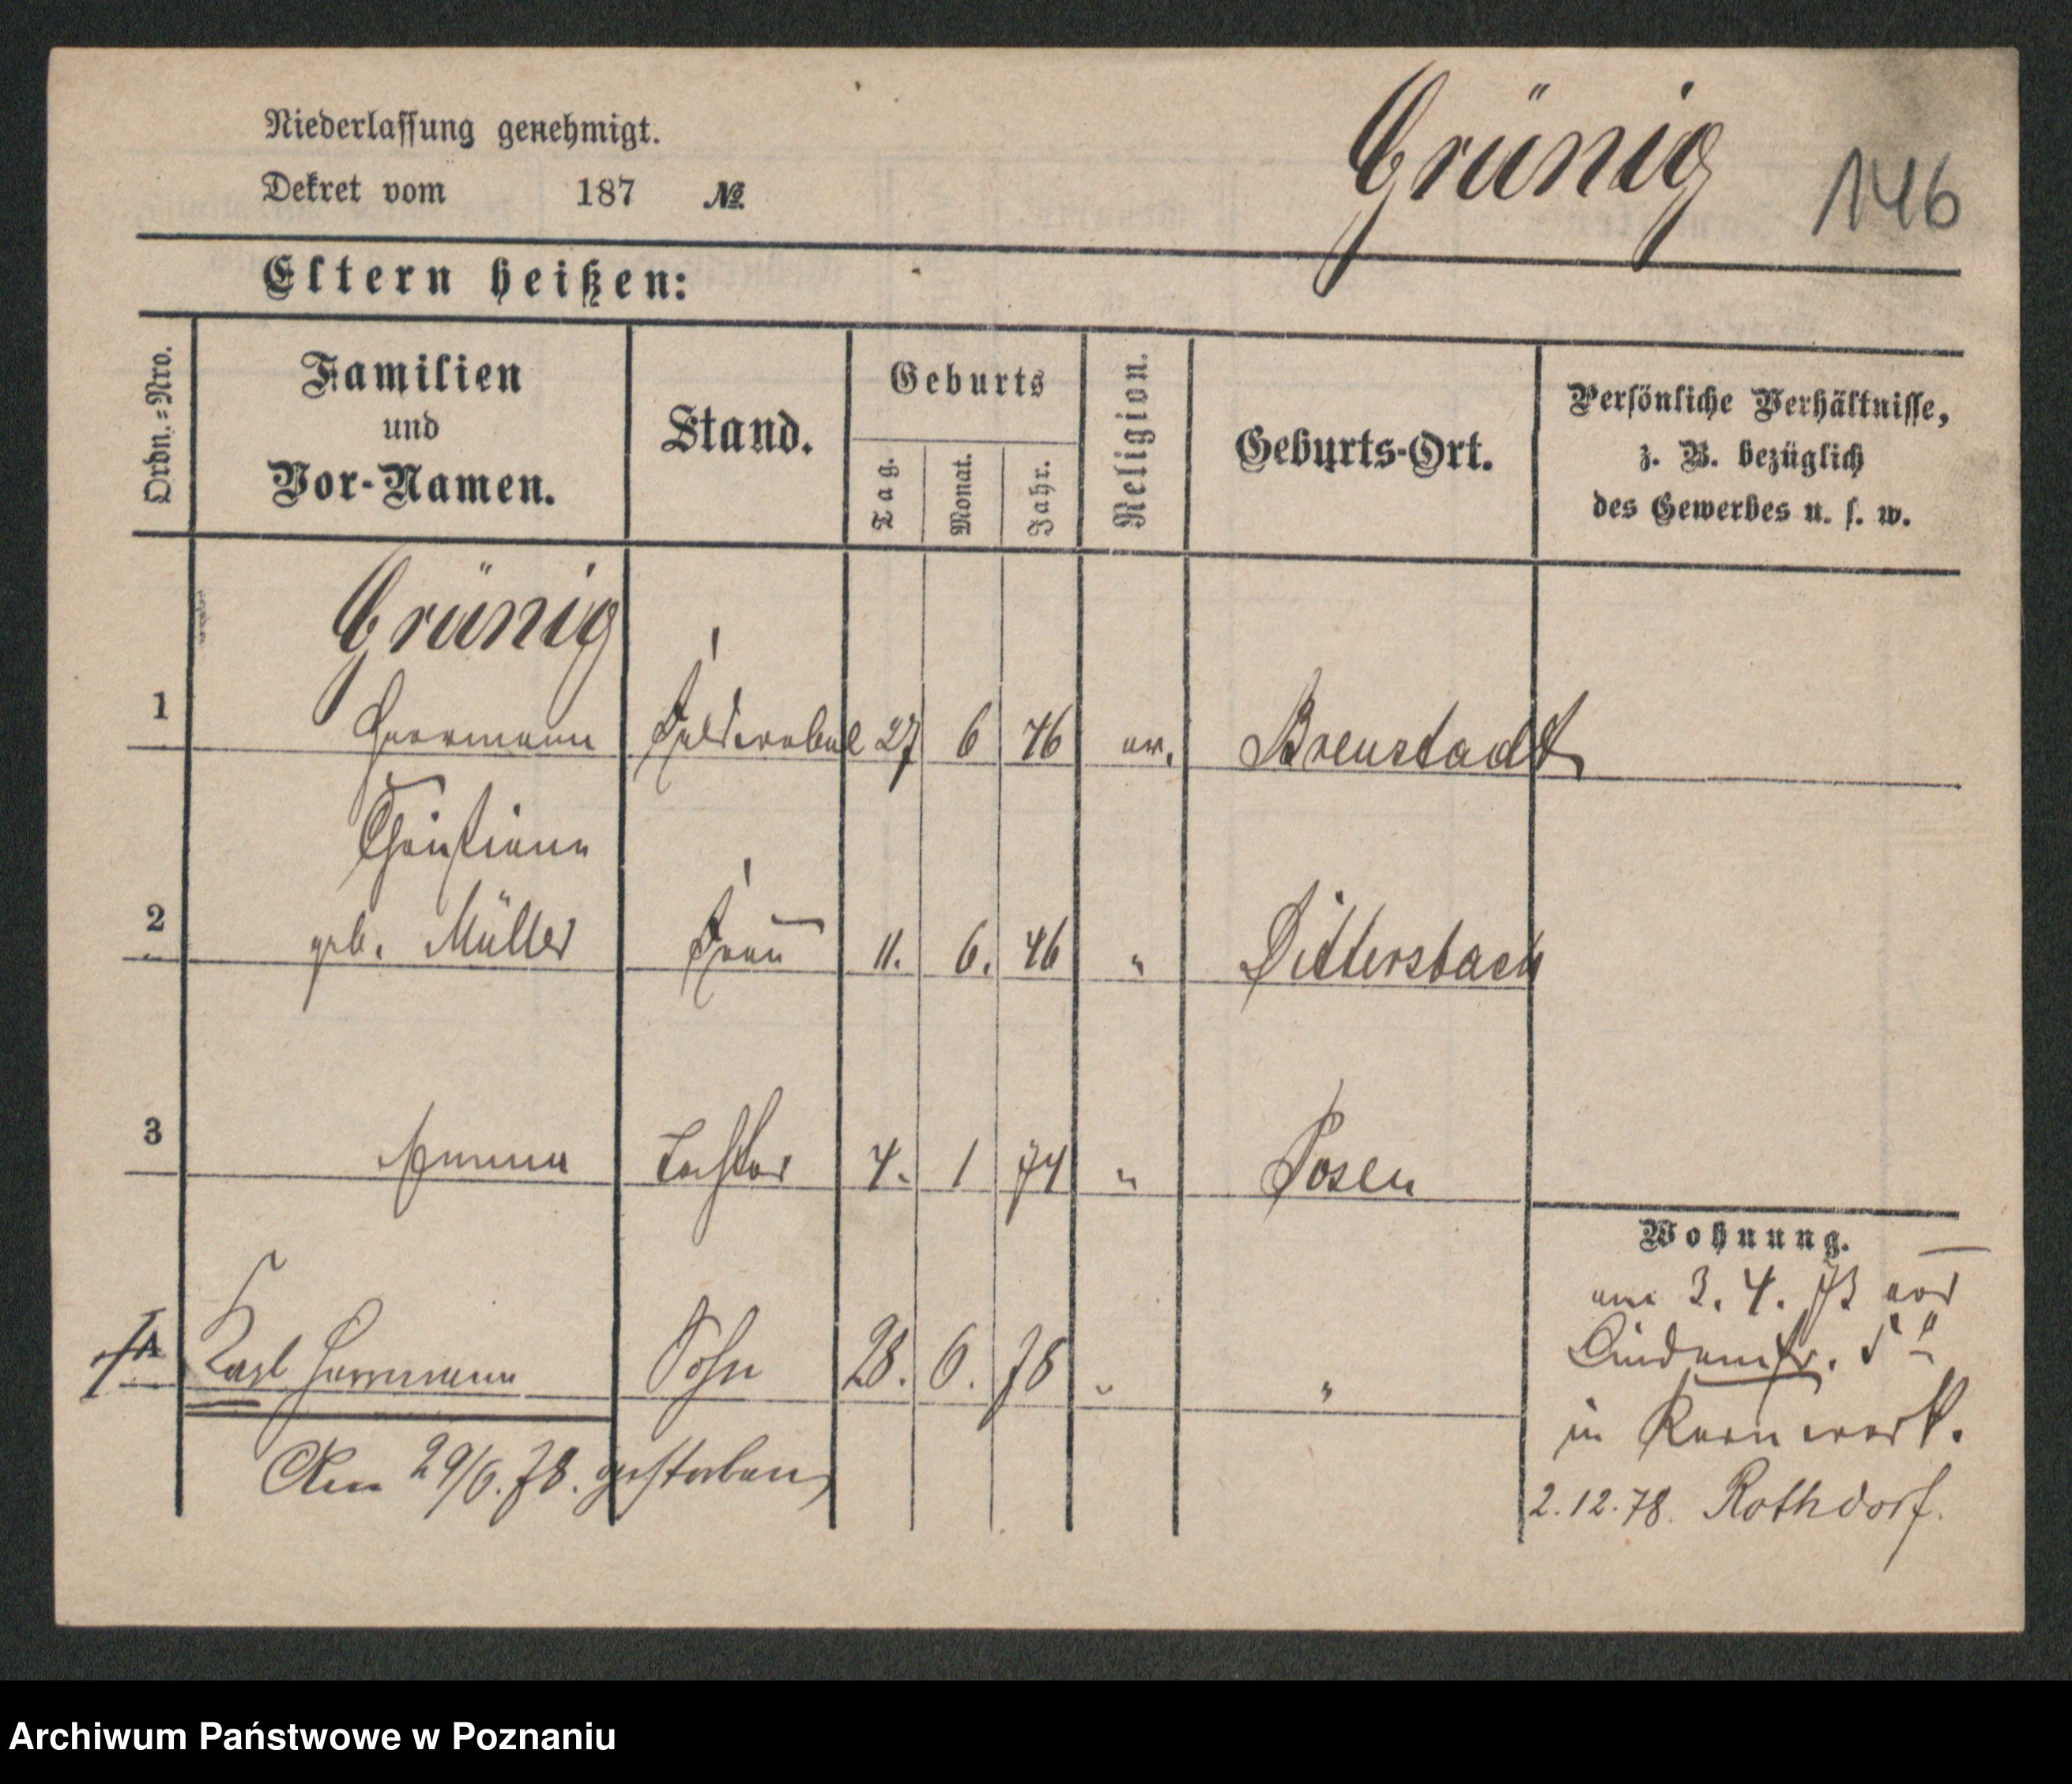 Niederlassung genehmigt.
Dekret vom 187 №
Grünig
146
Eltern heißen:
Ordn.=Nro.
Familien
und
Vor-Namen.
Stand.
Geburts
Tag.
Monat.
Jahr.
Religion.
Geburts-Ort.
Persönliche Verhältnisse,
z. B. bezüglich
des Gewerbes u. s. w.
Grünig
1 Herrmann Feldwebel 27 6 46 ev. Breustadt
Christiane
2 geb. Müller Frau 11. 6. 46 " Dittersbach
3 Emma Tochter 4. 1 74 " Posen
Wohnung.
am 3. 4. 73
Lindenstr. 5
in Kernwerk.
2.12.78. Rothdorf.
4 Karl Herrmann Sohn 28. 6. 78 " "
Am 29/6. 78. gestorben
Archiwum Państwowe w Poznaniu